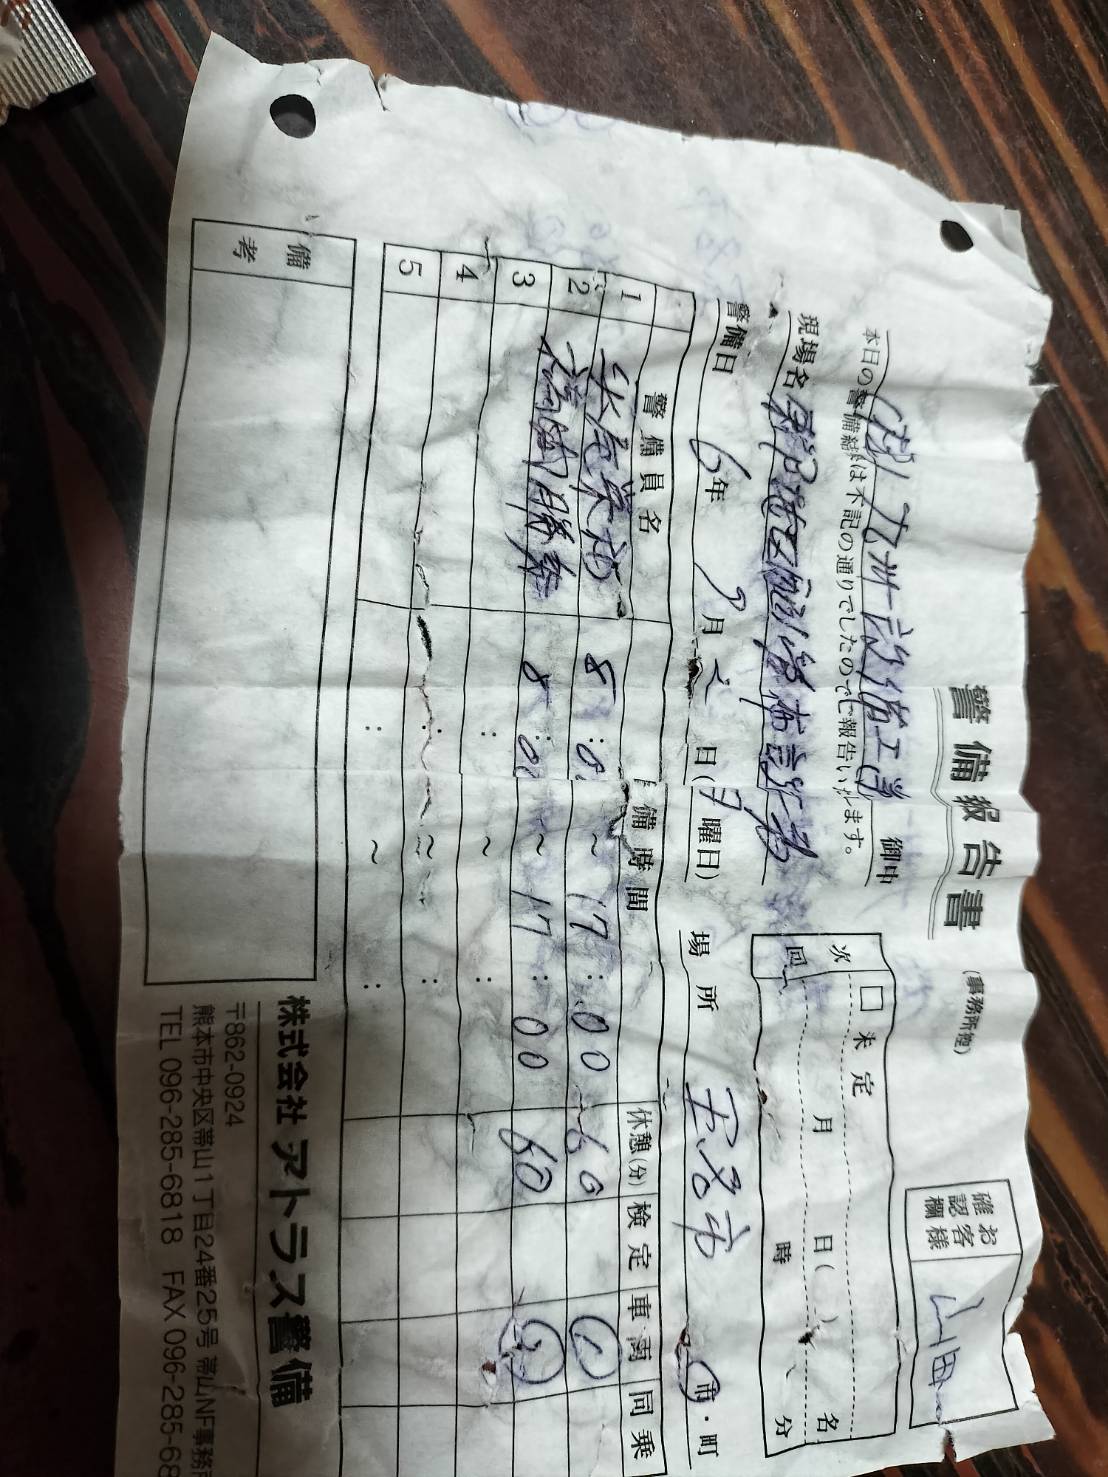 警備報告書 (事務所控)
お客様
確認欄 山田
(株)九州設備工業 御中
本日の警備結果は下記の通りでしたのでご報告いたします。
次回 □ 未定 月 日( ) 名
時 分
現場名
警備日 6年 9月 2日(月曜日) 場所 玉名市 市・町
警備員名 警備時間 休憩(分) 検定 車両 同乗
1 8:0 ~ 17:00 60 ①
2 8:00 ~ 17:00 60
3 : ~ :
4 : ~ :
5 : ~ :
備考
株式会社 アトラス警備
〒862-0924
熊本市中央区帯山1丁目24番25号 帯山NF事務所
TEL 096-285-6818 FAX 096-285-68